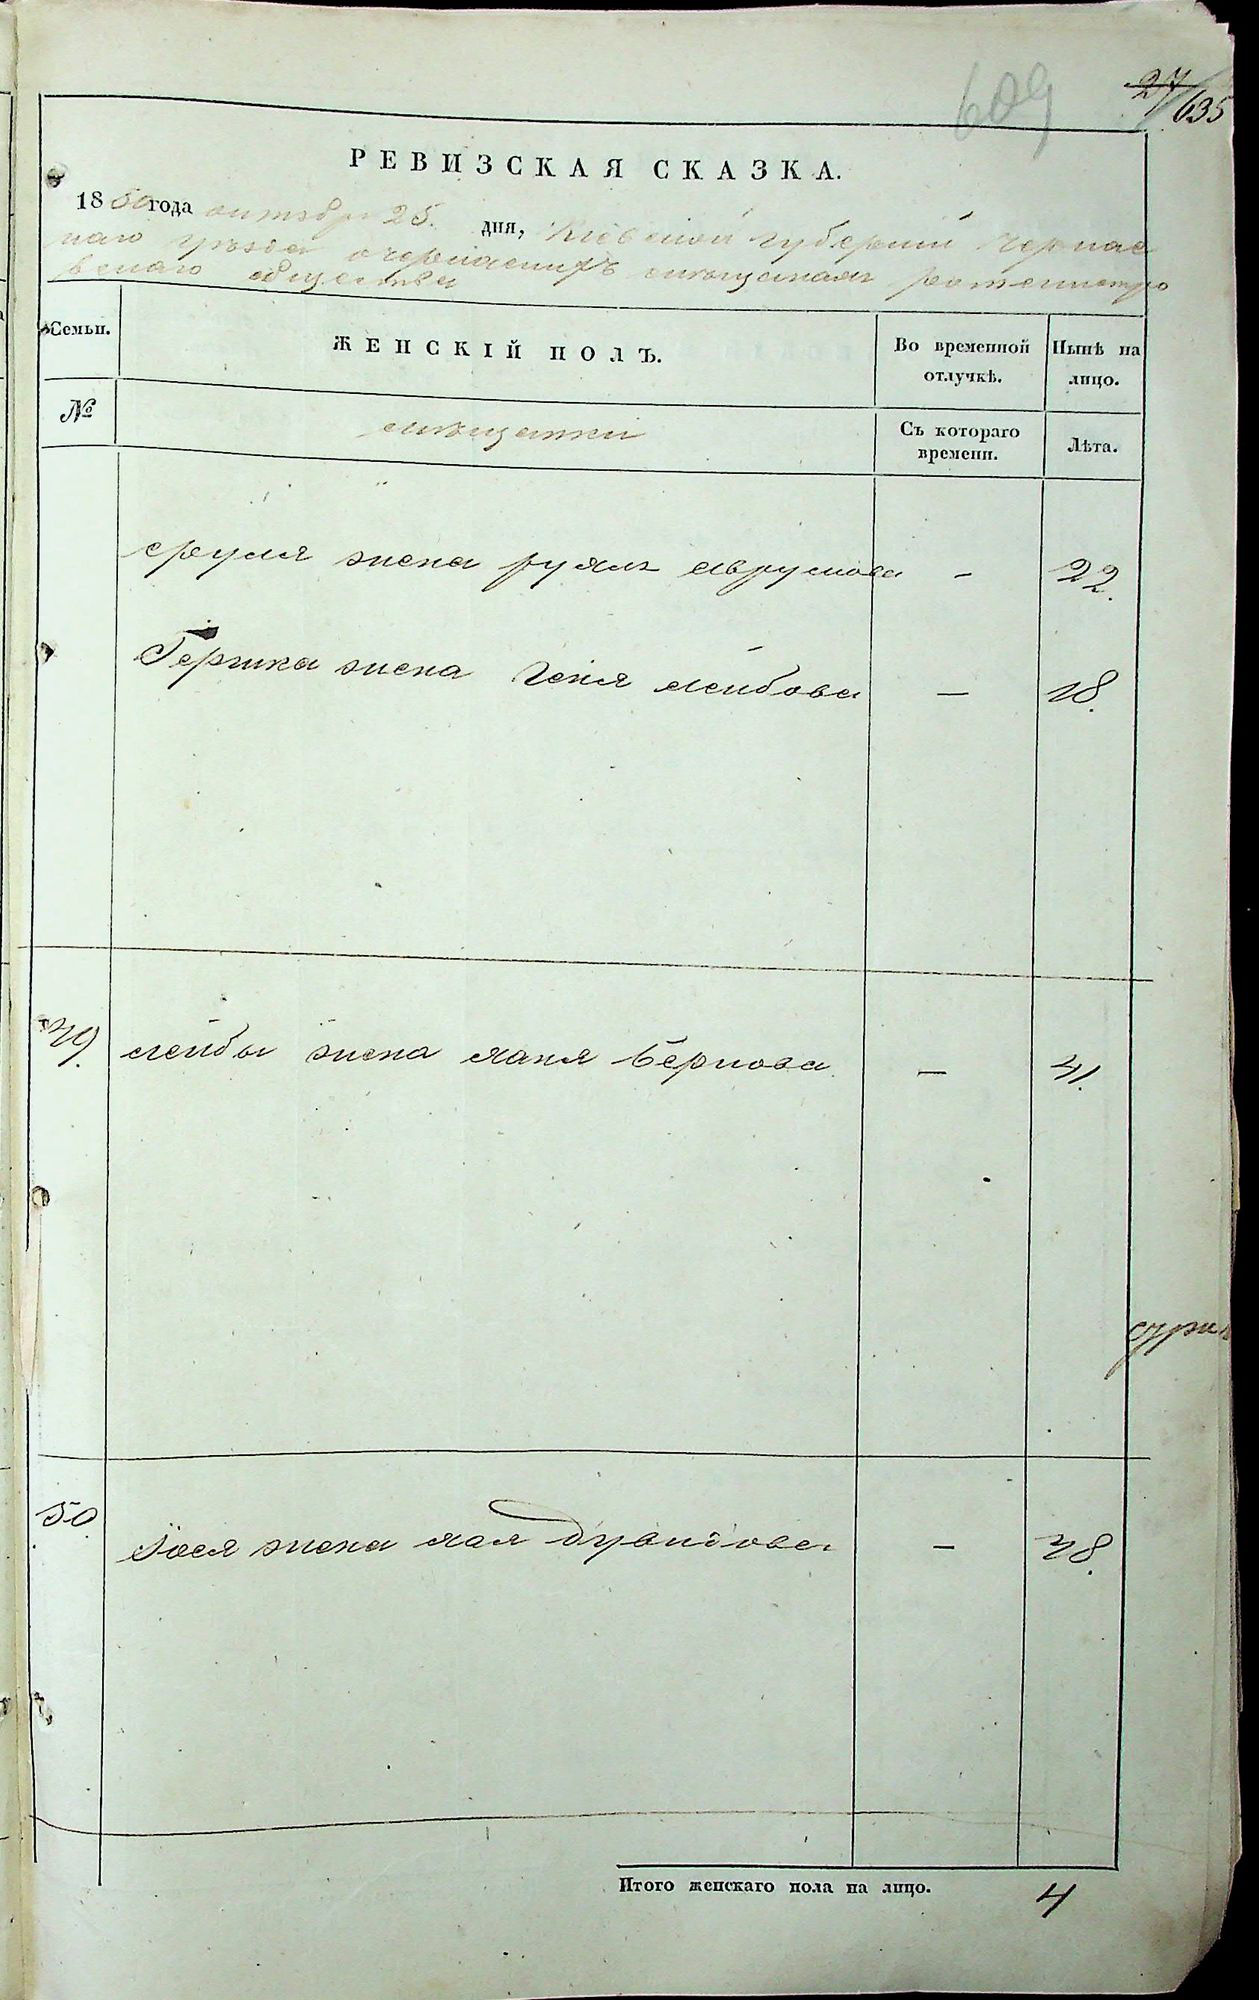 609
27
635
РЕВИЗСКАЯ СКАЗКА.
1850 года октября 25. дня, Кіевской губерніи Черкас
каго уѣзда о еврейскихъ мѣщанахъ ротмистро
вскаго общества
Семьи. ЖЕНСКІЙ ПОЛЪ. Во временной отлучкѣ. Нынѣ на лицо.
№ мѣщанки Съ котораго времени. Лѣта.
сруля жена рухля аврумова - 22.
Гершка жена Геня лейбова — 18.
49. лейбы жена ханя беркова — 41.
сурж
50. Іося жена хая дувидова - 48.
Итого женскаго пола на лицо. 4